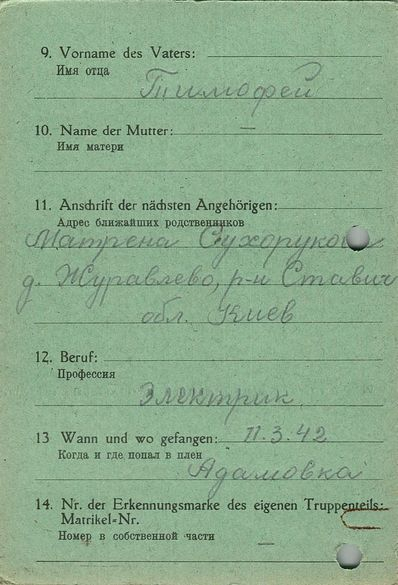 9. Vorname des Vaters:
Имя отца
Тимофей
10. Name der Mutter: —
Имя матери
11. Anschrift der nächsten Angehörigen:
Адрес ближайших родственников
Матрена Сухорукова
д. Журавлево, р-н Ставич
обл. Киев
12. Beruf:
Профессия
Электрик
13 Wann und wo gefangen: 11.3.42
Когда и где попал в плен
Адамовка
14. Nr. der Erkennungsmarke des eigenen Truppenteils:
Matrikel-Nr.
Номер в собственной части —